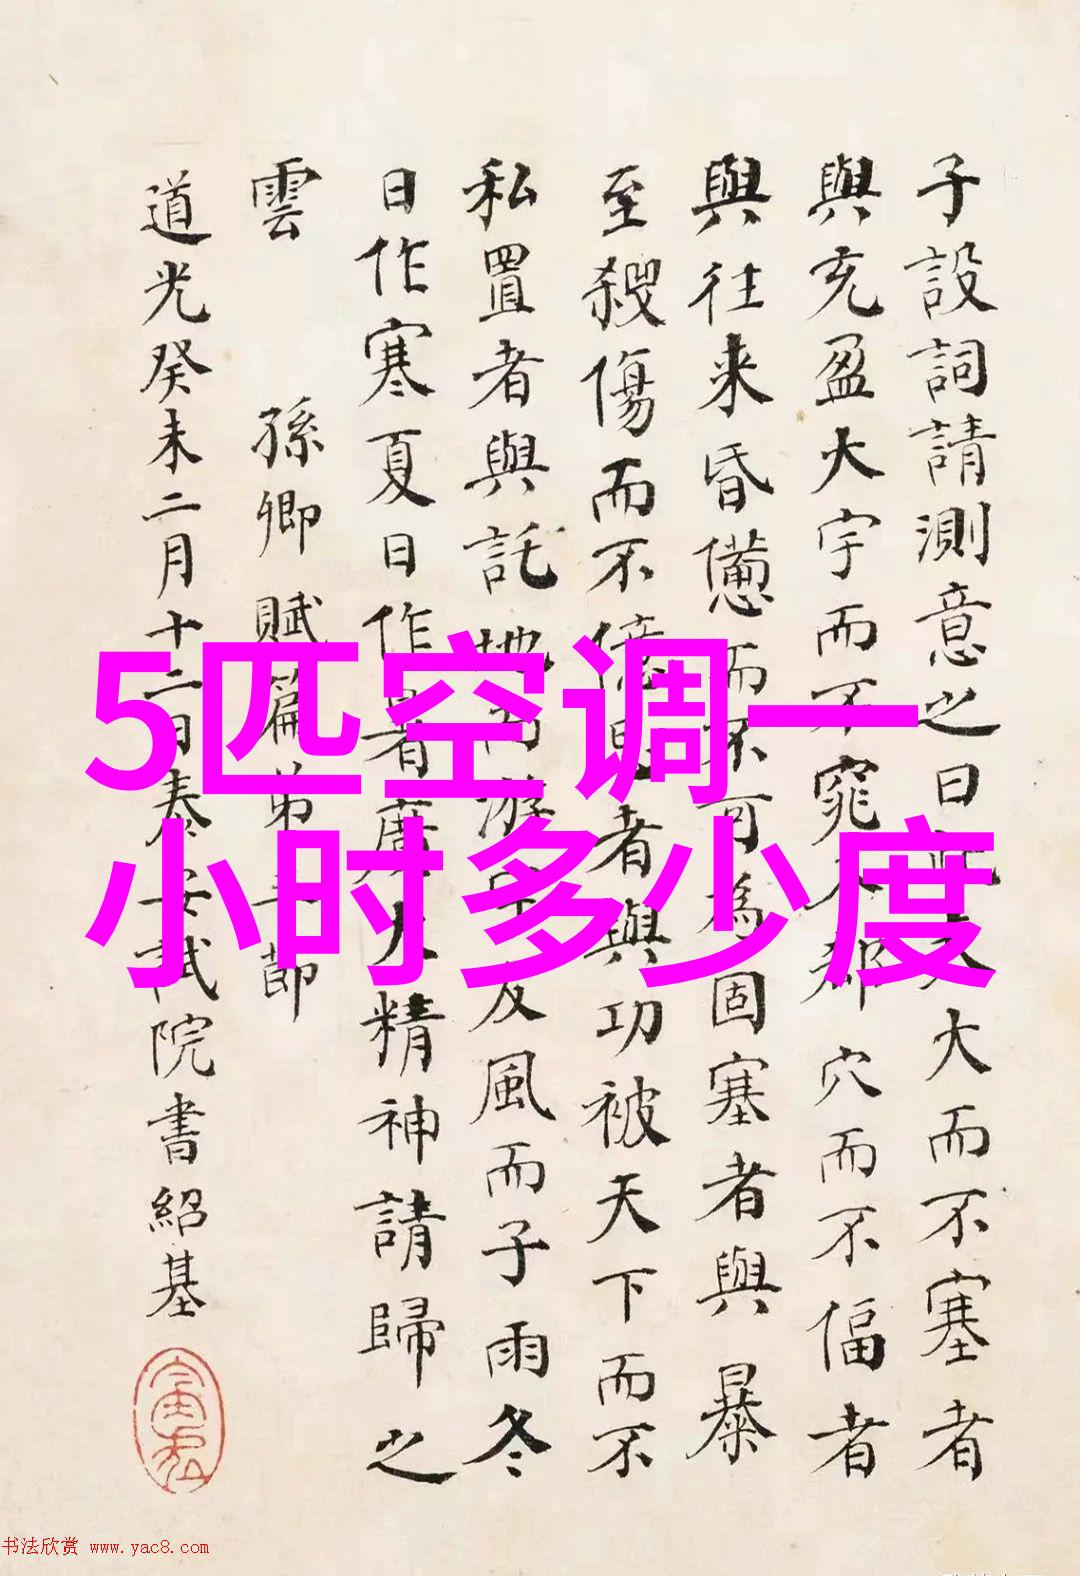 子設詞請測意之曰此夫大而不塞者
與充盈大宇而不窕入郄穴而不偪者
與往來昏憊而不可為固塞者與暴
至殺傷而不億忌者與功被天下而不
私置者與託地而游宇友風而子雨冬
日作寒夏日作暑廣大精神請歸之
雲 孫卿賦篇弟三節
道光癸未二月十二日泰安試院書紹基
5匹空调一
小时多少度
书法欣赏 www.yac8.com